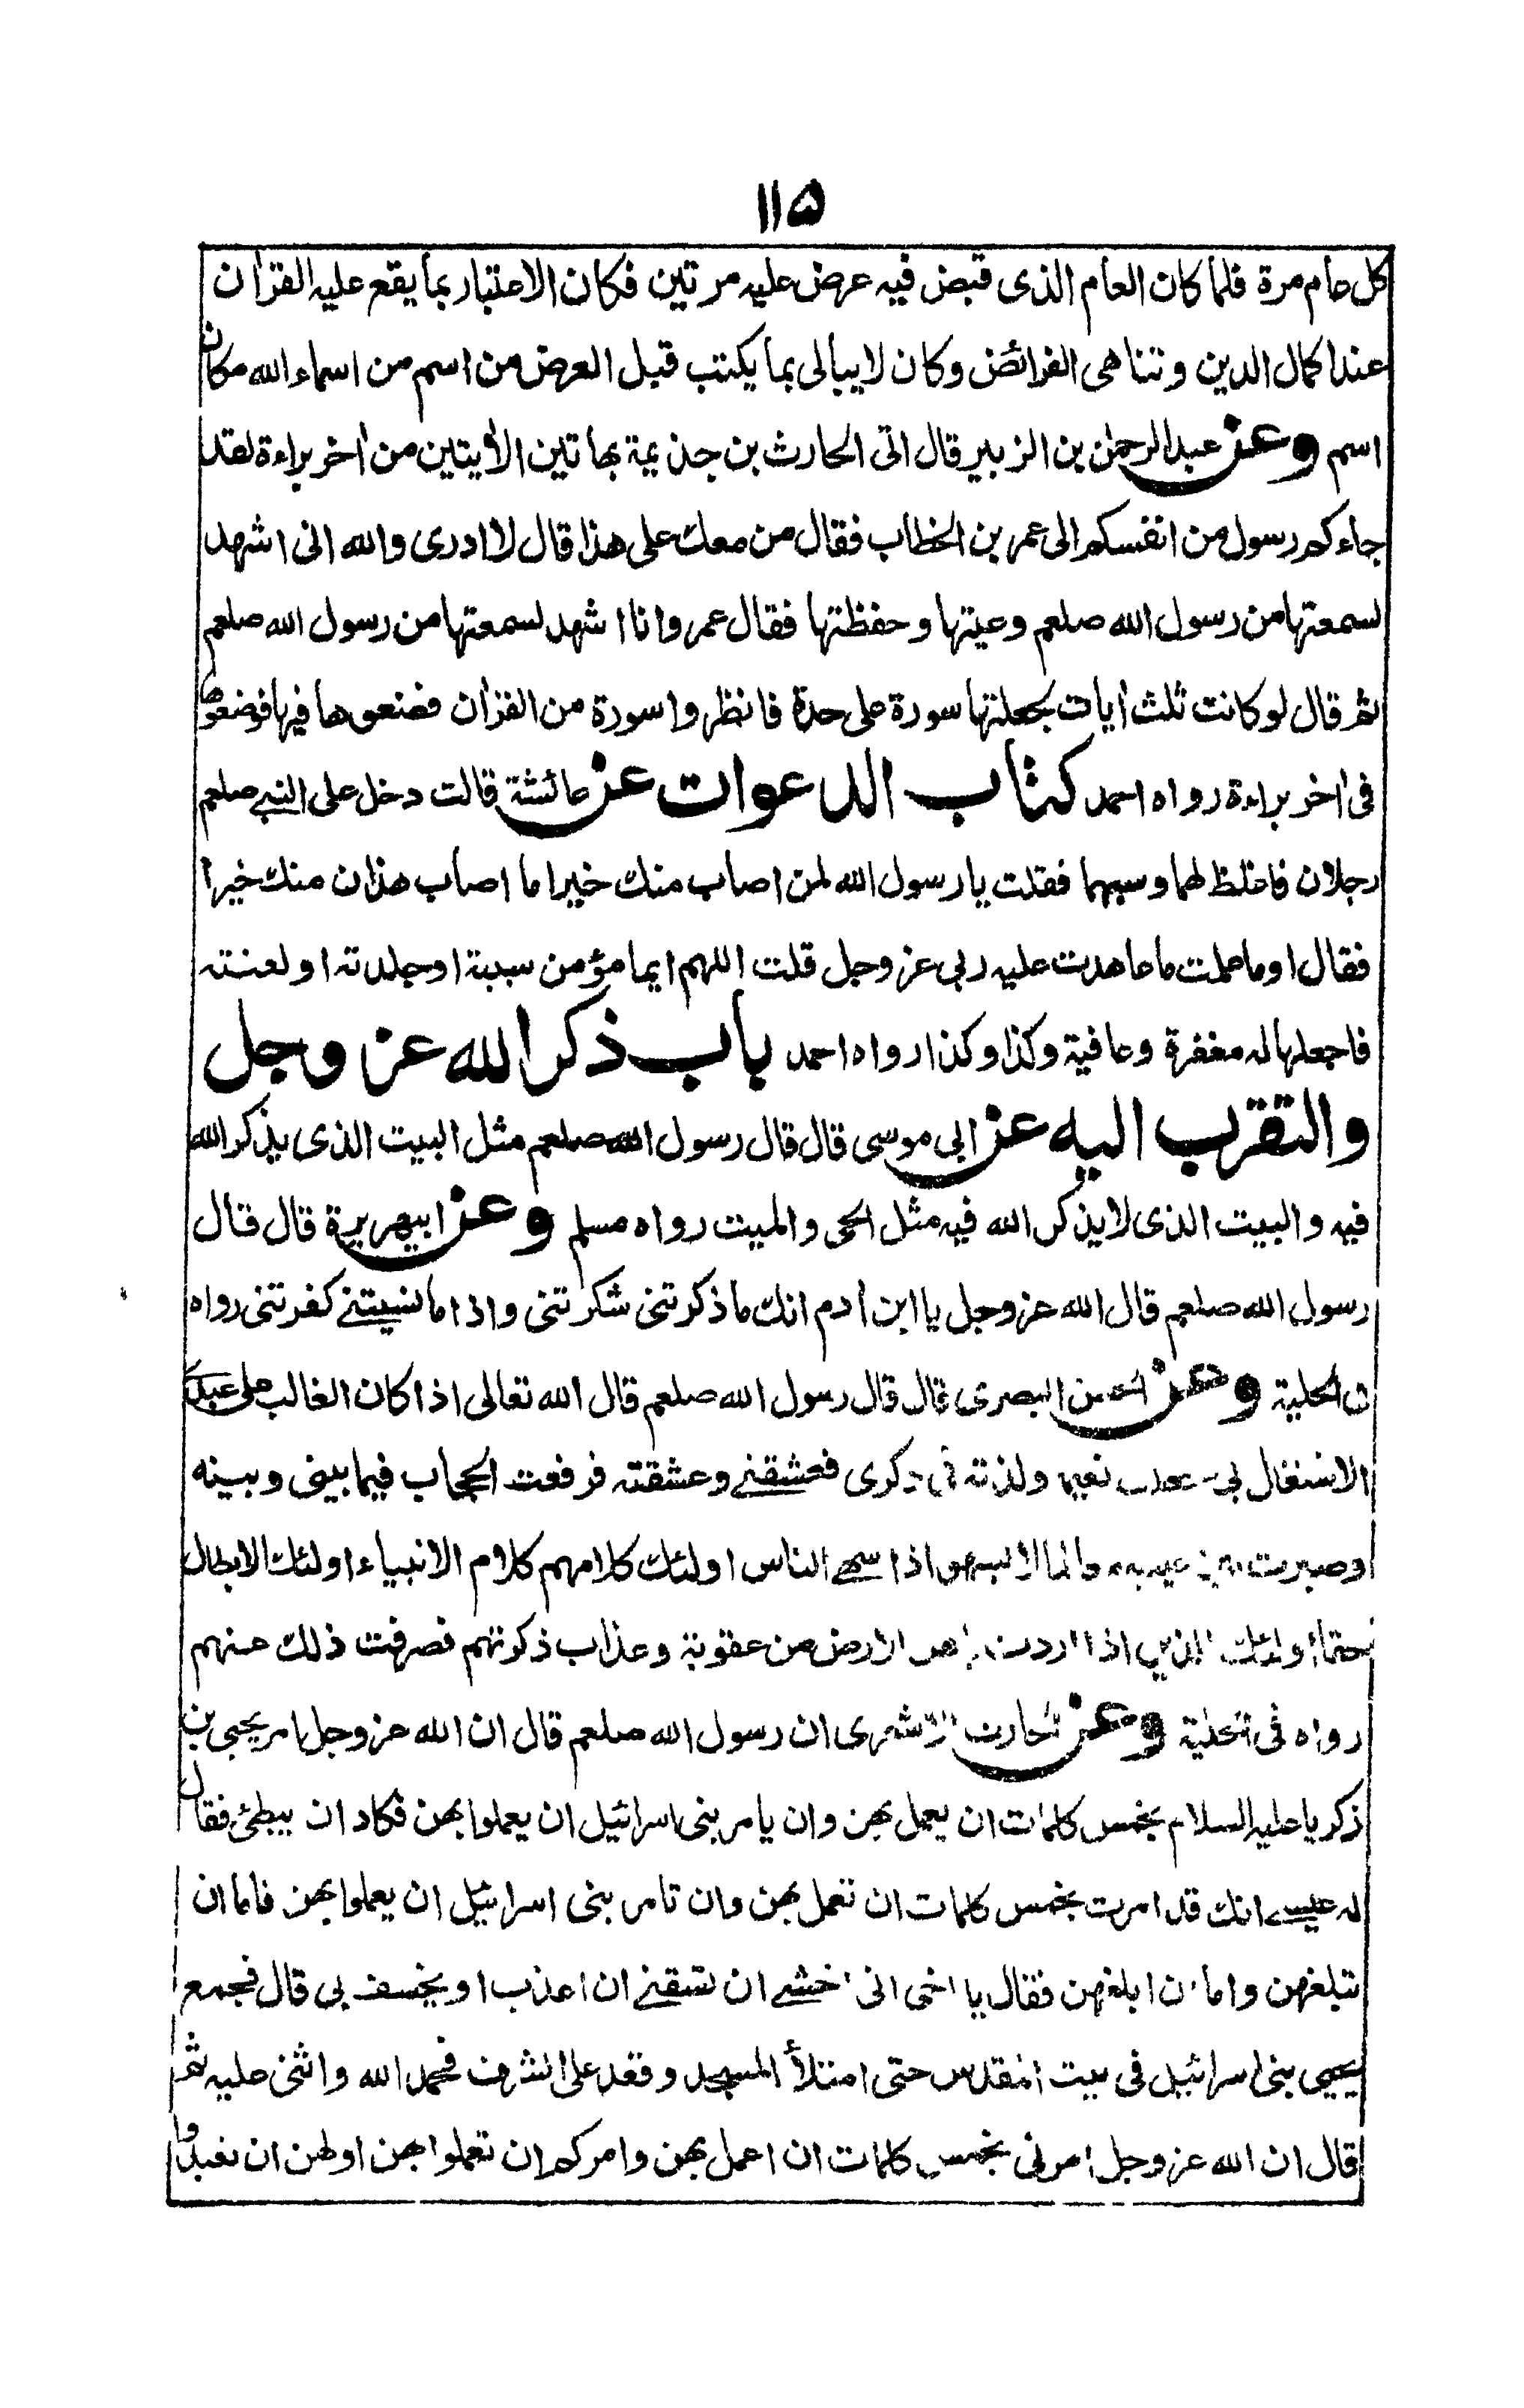 ١١٥
كل عام مرة فلما كان العام الذى قبض فيه عرض عليه مرتين فكان الاعتبار بما يقع عليه القرآن
عند اكمال الدين وتناهى الفرائض وكان لا يبالى بما يكتب قبل العرض من اسم من اسماء الله مكان
اسم وعن عبد الرحمٰن بن الزبير قال اتى الحارث بن جذيمة بهاتين الأيتين من أخر براءة لقد
جاءكم رسول من انفسكم الى عمر بن الخطاب فقال من معك على هذا قال لا ادرى والله انى اشهد
لسمعتها من رسول الله صلعم وعيتها وحفظتها فقال عمر وانا اشهد لسمعتها من رسول الله صلعم
ثم قال لو كانت ثلث أيات لجعلتها سورة على حدة فانظروا سورة من القرأن فضعوها فيها فوضعوها
فى أخر براءة رواه احمد كتاب الدعوات عن عائشة قالت دخل على النبى صلعم
رجلان فاغلظ لهما وسبهما فقلت يا رسول الله لمن اصاب منك خيرا ما اصاب هذان منك خيرا
فقال اوما علمت ما عاهدت عليه ربى عز وجل قلت اللهم ايما مؤمن سببته اوجلدته او لعنته
فاجعلها له مغفرة وعافية وكذا وكذا رواه احمد باب ذكر الله عز وجل
والتقرب اليه عن ابى موسى قال قال رسول الله صلعم مثل البيت الذى يذكر الله
فيه والبيت الذى لا يذكر الله فيه مثل الحى والميت رواه مسلم وعن ابيهريرة قال قال
رسول الله صلعم قال الله عز وجل يا ابن أدم انك ما ذكرتنى شكرتنى واذا ما نسيتنى كفرتنى رواه
فى الحلية وعن الحسن البصرى قال قال رسول الله صلعم قال الله تعالى اذا كان الغالب على عبدى
الاشتغال بى جعلت نعيمه ولذته فى ذكرى فعشقنى وعشقته فرفعت الحجاب فيما بينى وبينه
وصيرت بين عينيه معالما لا يسهو اذا سهى الناس اولئك كلامهم كلام الانبياء اولئك الابطال
حقا اولئك الذين اذا اردت باهل الارض من عقوبة وعذاب ذكرتهم فصرفت ذلك عنهم
رواه فى الحلية وعن الحارث الاشعرى ان رسول الله صلعم قال ان الله عز وجل امر يحيى بن
زكريا عليه السلام بخمس كلمات ان يعمل بهن وان يامر بنى اسرائيل ان يعملوا بهن فكاد ان يبطئ فقال
له عيسى انك قد امرت بخمس كلمات ان تعمل بهن وان تامر بنى اسرائيل ان يعملوا بهن فاما ان
تبلغهن واما ان ابلغهن فقال يا اخى انى اخشى ان تسبقنى ان اعذب او يخسف بى قال فجمع
يحيى بنى اسرائيل فى بيت المقدس حتى امتلأ المسجد وقعد على الشرف فحمد الله واثنى عليه ثم
قال ان الله عز وجل امرنى بخمس كلمات ان اعمل بهن وامركم ان تعملوا بهن اولهن ان تعبدوا